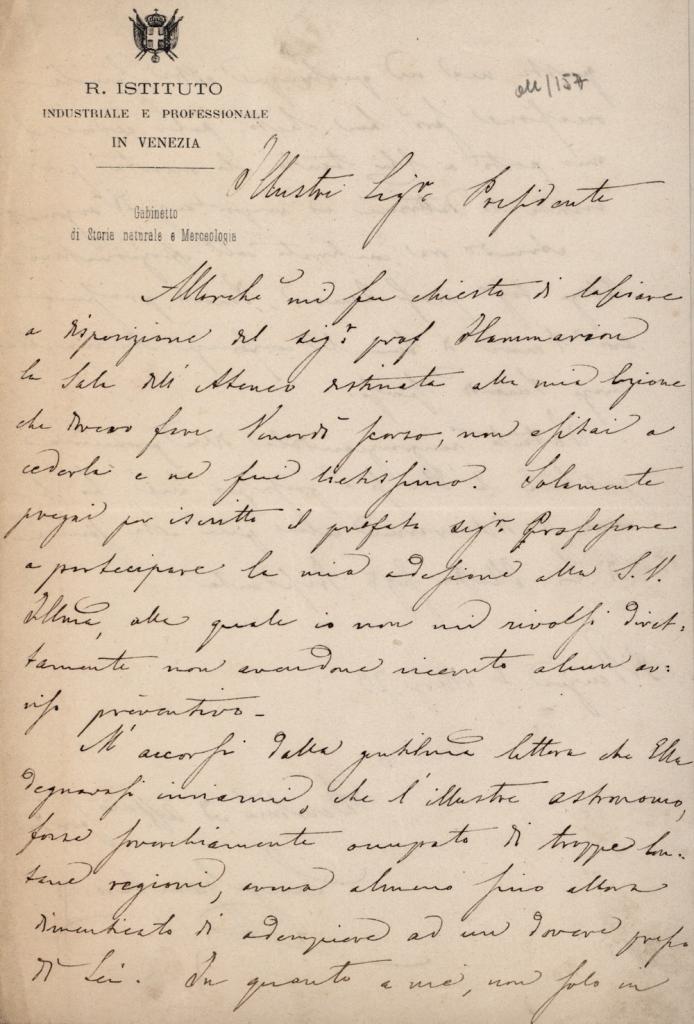 R. ISTITUTO
INDUSTRIALE E PROFESSIONALE
IN VENEZIA
all/157
Gabinetto
di Storia naturale e Merceologia
Illustre Sigr. Presidente
Allorchè mi fu chiesto di lasciare
a disposizione del sigr. prof Flammarion
la Sala dell'Ateneo destinata alla mia lezione
che dovevo fare Venerdì scorso, non esitai a
cederla e ne fui lietissimo. Solamente
pregai per iscritto il prefato sigr. Professore
a partecipare la mia adesione alla S. V.
Illma, alla quale io non mi rivolsi diret-
tamente non avendone ricevuto alcun av-
viso preventivo.
M'accorsi dalla gentilma lettera che Ella
degnavasi inviarmi, che l'illustre astronomo,
forse soverchiamente occupato di troppo lon-
tane regioni, aveva almeno fino allora
dimenticato di adempiere ad un dovere presso
di Lei. In quanto a me, non solo in